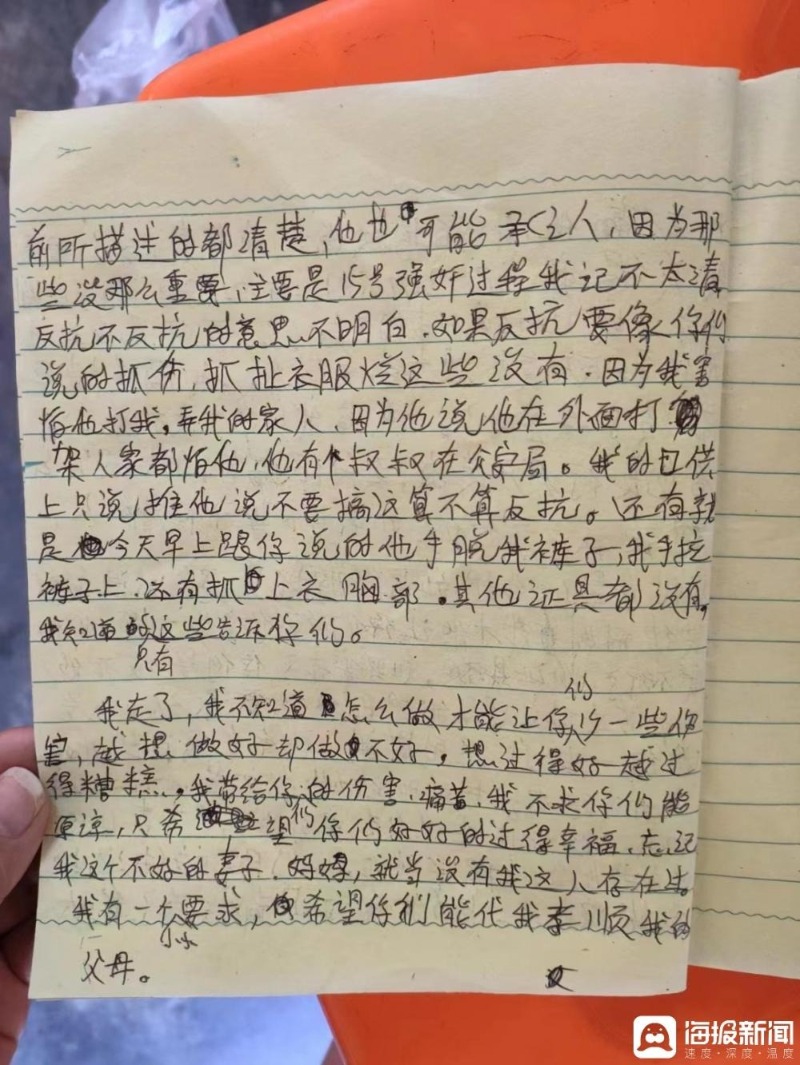 前所描述的都清楚，他也可能承认，因为那
些没那么重要，主要是15号强奸过程我记不太清
反抗不反抗的意思不明白．如果反抗要像你们
说的抓伤，抓扯衣服烂这些没有．因为我害
怕他打我，弄我的家人，因为他说他在外面打
架人家都怕他，他有个叔叔在公安局。我的口供
上只说推他说不要搞这算不算反抗。还有就
是今天早上跟你说的他手脱我裤子，我手拉
裤子上，还有抓上衣胸部。其他证具都没有，
我知道的只有这些告诉你们。
我走了，我不知道怎么做才能让你们少一些伤
害，越想做好却做不好，想过得好越过
得糟糕。我带给你们的伤害、痛苦，我不求你们能
原谅，只希望你们好好的过得幸福、忘记
我这个不好的妻子．妈妈，就当没有我这人存在过。
我有一个小小要求，希望你们能代我孝顺我的
父母。
海报新闻
速度·深度·温度